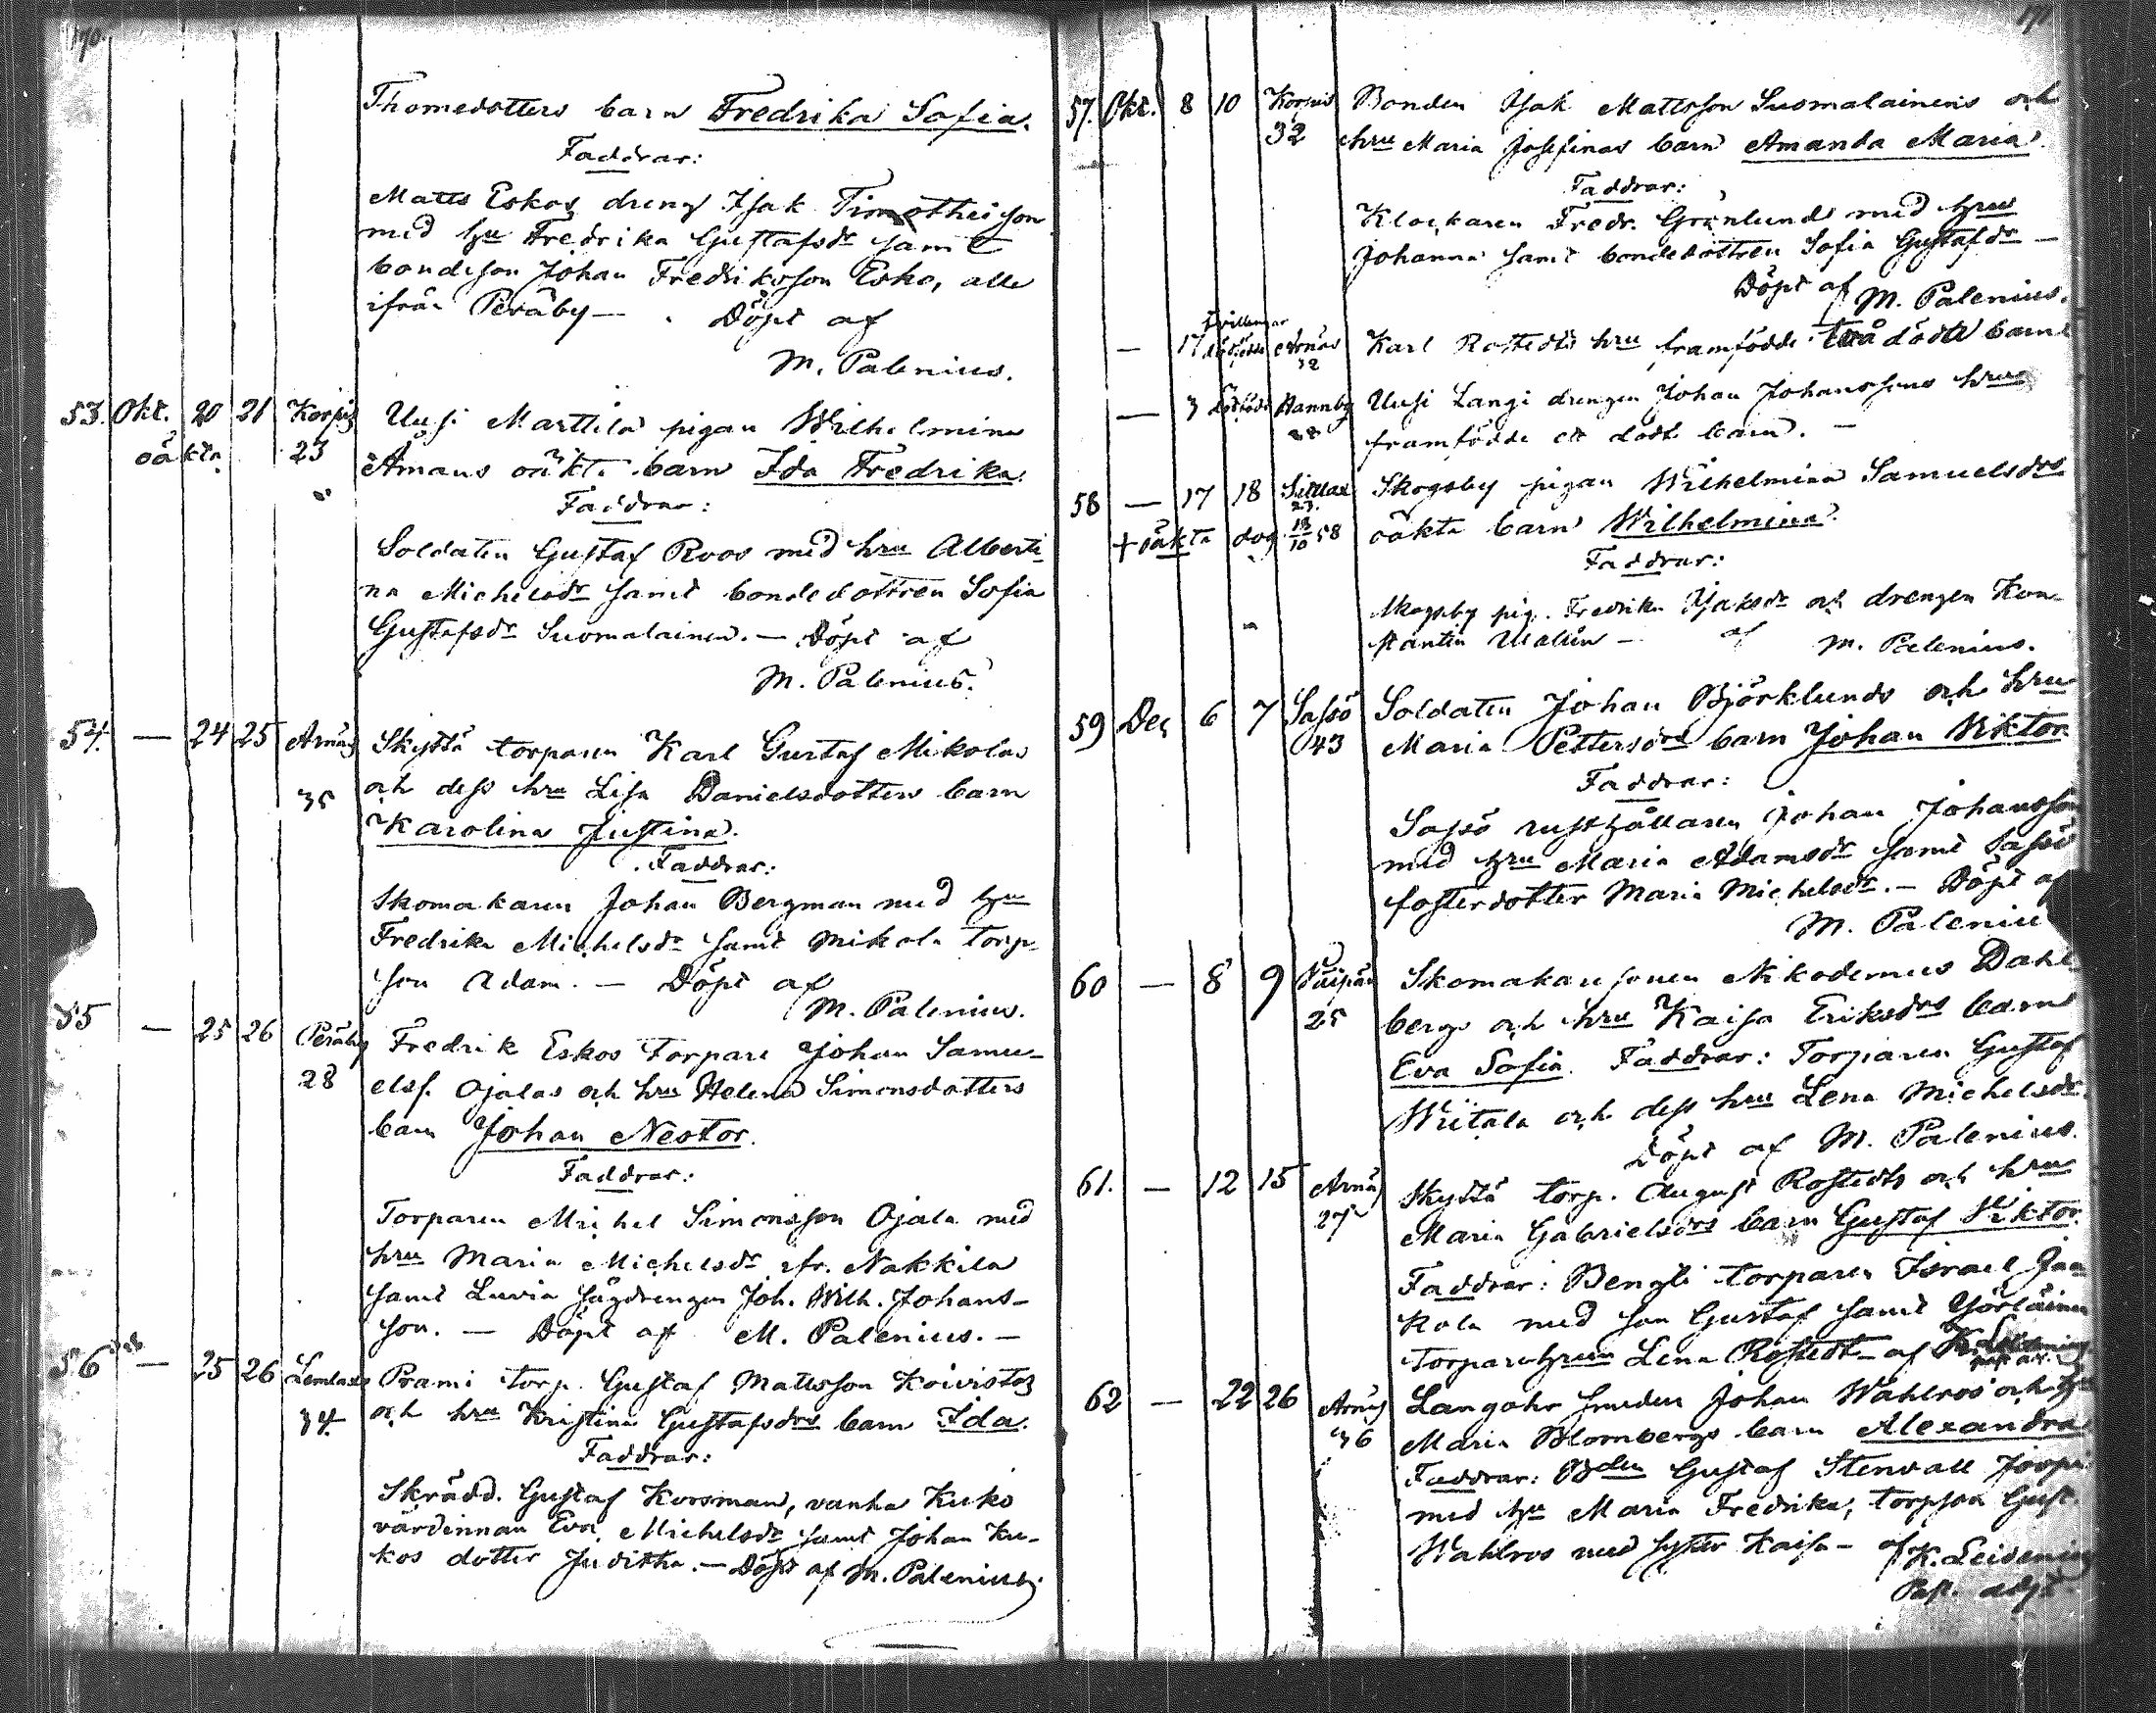 170.
Thomedotters barn Fredrika Sofia.
Faddrar:
Matts Eskos dreng Isak Timotheison
med hu Fredrika Gustafsdr samt
bondeson Johan Fredriksson Esko, alle
ifrån Peräby — Döpt af
M. Palenius.
53. Okt. 20 21 Korpis Uusi Marttila pigan Wilhelmina
oäkta 23 Åmans oäkta barn Ida Fredrika.
Faddrar:
Soldaten Gustaf Roos med hru Alberti-
na Michelsdr samt bondedottren Sofia
Gustafsdr Suomalainen. — Döpt af
M. Palenius.
54. — 24 25 Arnäs Skyttä torparen Karl Gustaf Mikolas
35 och dess hru Lisa Danielsdotters barn
Karolina Justina.
Faddrar:
Skomakaren Johan Bergman med hu
Fredrika Michelsdr samt Mikola torp-
son Adam. — Döpt af
M. Palenius.
55 — 25 26 Peräby Fredrik Eskos Torpare Johan Samu-
28 elsf. Ojalas och hru Helena Simonsdotters
barn Johan Nestor.
Faddrar:
Torparen Michel Simonsson Ojala med
hru Maria Michelsdr ifr. Nakkila
samt Luvia sågdrengen Joh. Wilh. Johans-
son. — Döpt af M. Palenius. —
56 — 25 26 Lemlaks Prami torp. Gustaf Mattsson Koivistos
34 och hru Kristina Gustafsdrs barn Ida.
Faddrar:
Skrädd. Gustaf Korsman, vanha Kuko
värdinnan Eva Michelsdr samt Johan Ku-
kos dotter Juditha. — Döpt af M. Palenius.
171
57. Okt. 8 10 Korpis Bonden Isak Mattsson Suomalainens och
32 hru Maria Josefinas barn Amanda Maria.
Faddrar:
Klockaren Fredr. Grönlund med hru
Johanna samt bondedottren Sofia Gustafsdr —
Döpt af
M. Palenius.
tvillingar
— 17 dödfödde Arnäs Karl Rostedts hru framfödde två dödte barn
32
— 3 dödfödt Hannby Uusi Langi drengen Johan Johanssons hru
28 framfödde ett dödt barn. —
58 — 17 18 Skogsby pigan Wilhelmina Samuelsdrs
23.
+ oäkta dog 18/10 58 oäkta barn Wilhelmina.
Faddrar:
Skogsby pig. Fredrika Isaksdr och drengen Kon-
stantin Wallin — af M. Palenius.
59 Dec 6 7 Sassö Soldaten Johan Björklunds och hru
43 Maria Pettersdrs barn Johan Viktor
Faddrar:
Sassö rusthållaren Johan Johansson
med hru Maria Adamsdr samt Sassö
fosterdotter Maria Michelsdr. — Döpt af
M. Palenius
60 — 8 9 Skomakaresonen Nikodemus Dahl-
25 bergs och hru Kaisa Eriksdrs barn
Eva Sofia. Faddrar: Torparen Gustaf
Wiitala och dess hru Lena Michelsdr.
Döpt af M. Palenius.
61. — 12 15 Arnäs Skyttä torp. August Rostedts och hru
27 Maria Gabrielsdrs barn Gustaf Viktor.
Faddrar: Bengti torparen Israel Jaa
kola med son Gustaf samt
Torparehrun Lena Rostedt — af K. Leidenius
past. adj.
62 — 22 26 Arnäs Langohr smeden Johan Wahlros och hru
36 Maria Blombergs barn Alexandra
Faddrar: Bden Gustaf Stenvall
med hu Maria Fredrika, torpson Gust.
Wahlros med syster Kaisa — af K. Leidenius
Past. adjt